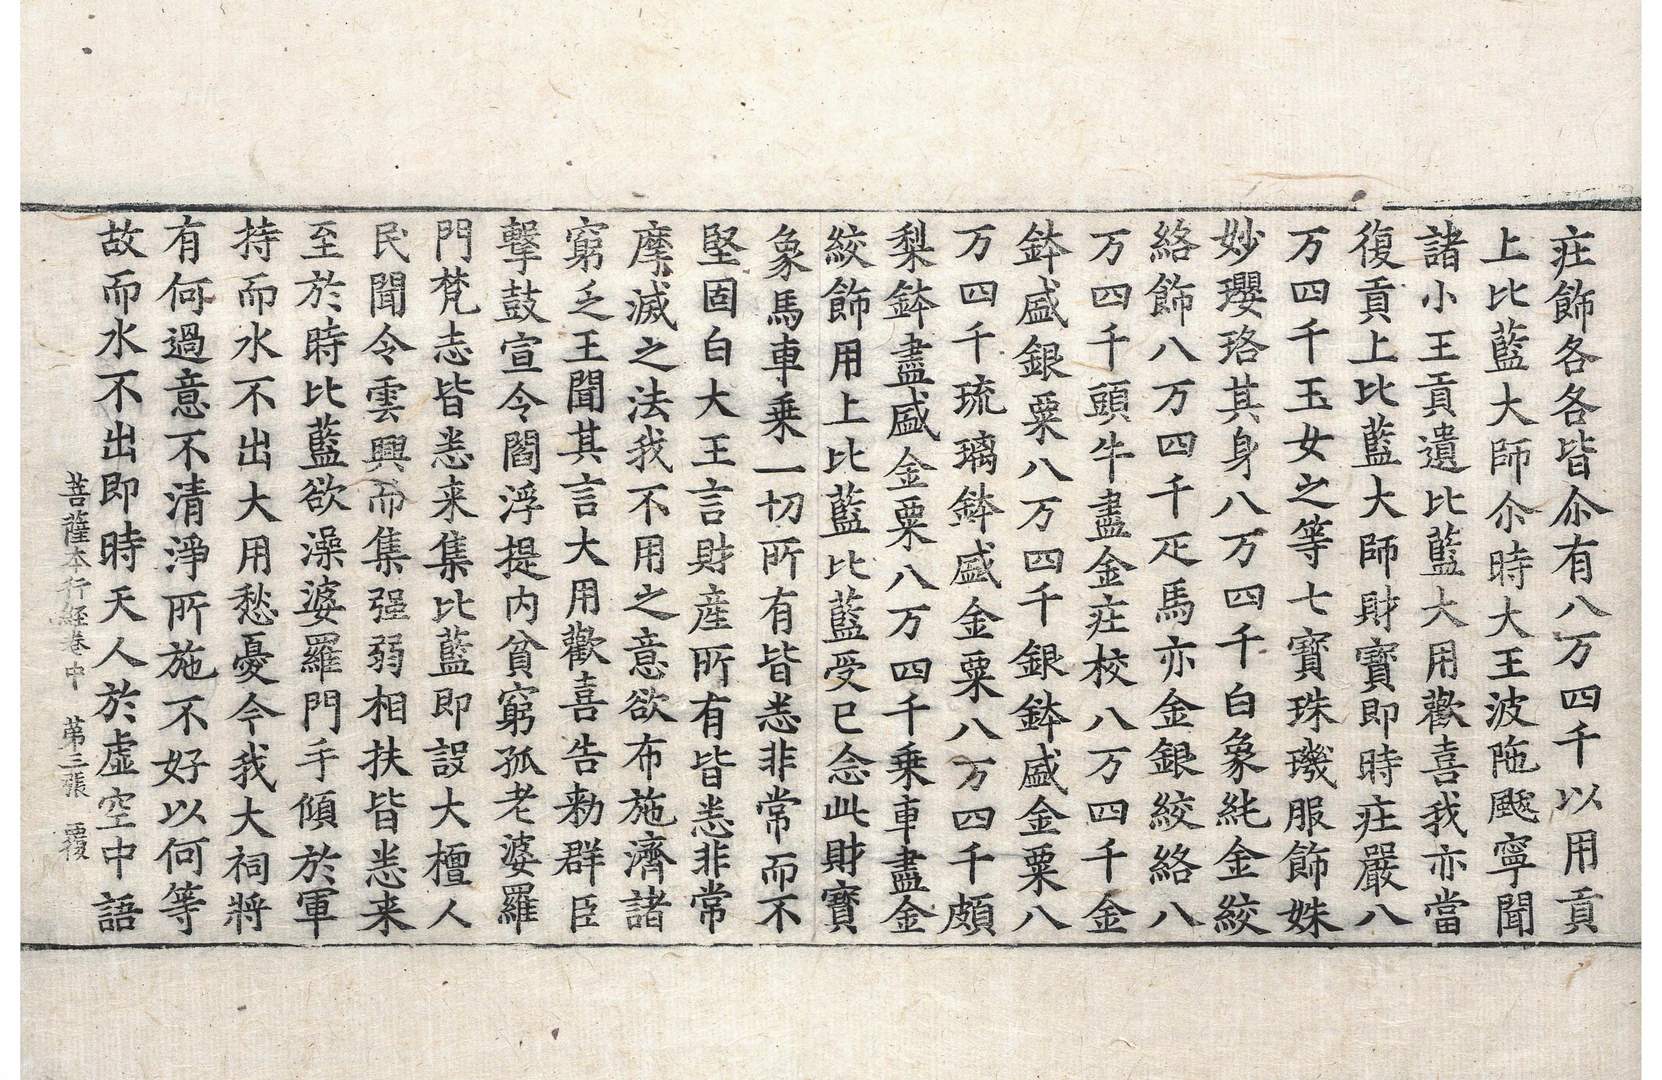 庄飾各各皆尒有八万四千以用貢
上比藍大師尒時大王波陁颰寧聞
諸小王貢遺比藍大用歡喜我亦當
復貢上比藍大師財寶即時庄嚴八
万四千玉女之等七寶珠璣服飾姝
妙瓔珞其身八万四千白象純金絞
絡飾八万四千疋馬亦金銀絞絡八
万四千頭牛盡金庄校八万四千金
鉢盛銀粟八万四千銀鉢盛金粟八
万四千琉璃鉢盛金粟八万四千頗
梨鉢盡盛金粟八万四千乗車盡金
絞飾用上比藍比藍受已念此財寶
象馬車乗一切所有皆悉非常而不
堅固白大王言財産所有皆悉非常
摩滅之法我不用之意欲布施濟諸
窮乏王聞其言大用歡喜告勑群臣
擊鼓宣令閻浮提内貧窮孤老婆羅
門梵志皆悉来集比藍即設大檀人
民聞令雲興而集强弱相扶皆悉来
至於時比藍欲澡婆羅門手傾於軍
持而水不出大用愁憂今我大祠將
有何過意不清淨所施不好以何等
故而水不出即時天人於虛空中語
菩薩本行経卷中　第三張　覆